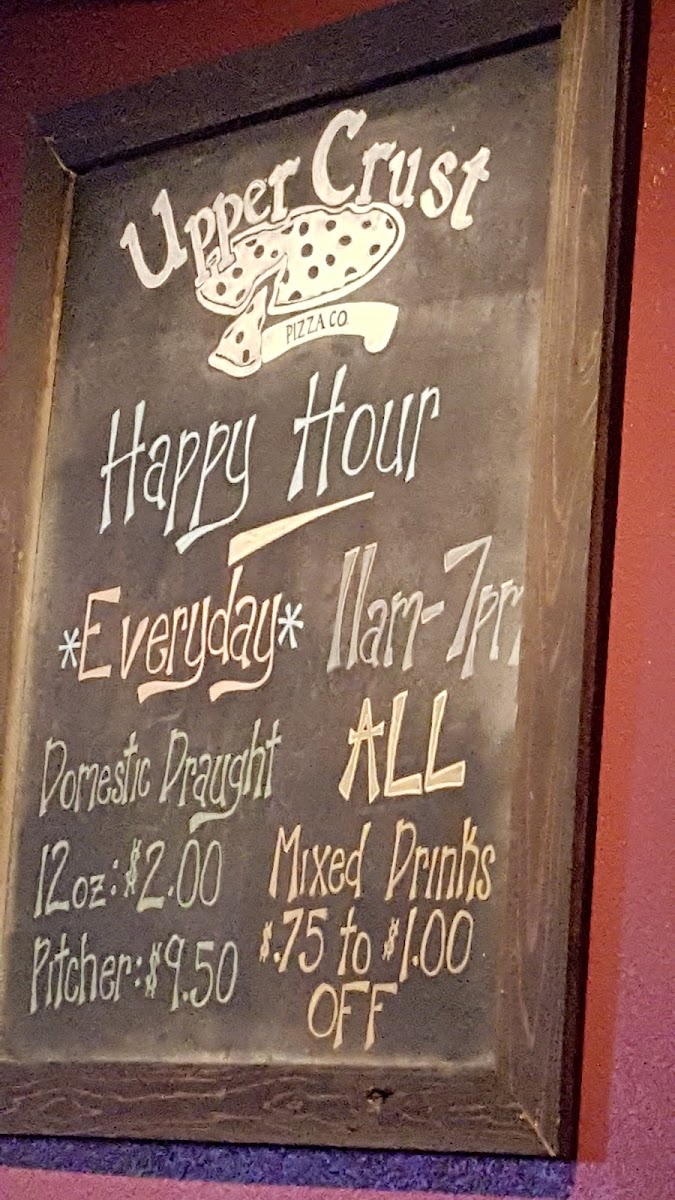 Upper Crust
PIZZA CO.
Happy Hour
*Everyday* 11am-7pm
Domestic Draught
12oz: $2.00
Pitcher: $9.50
ALL
Mixed Drinks
$.75 to $1.00
OFF